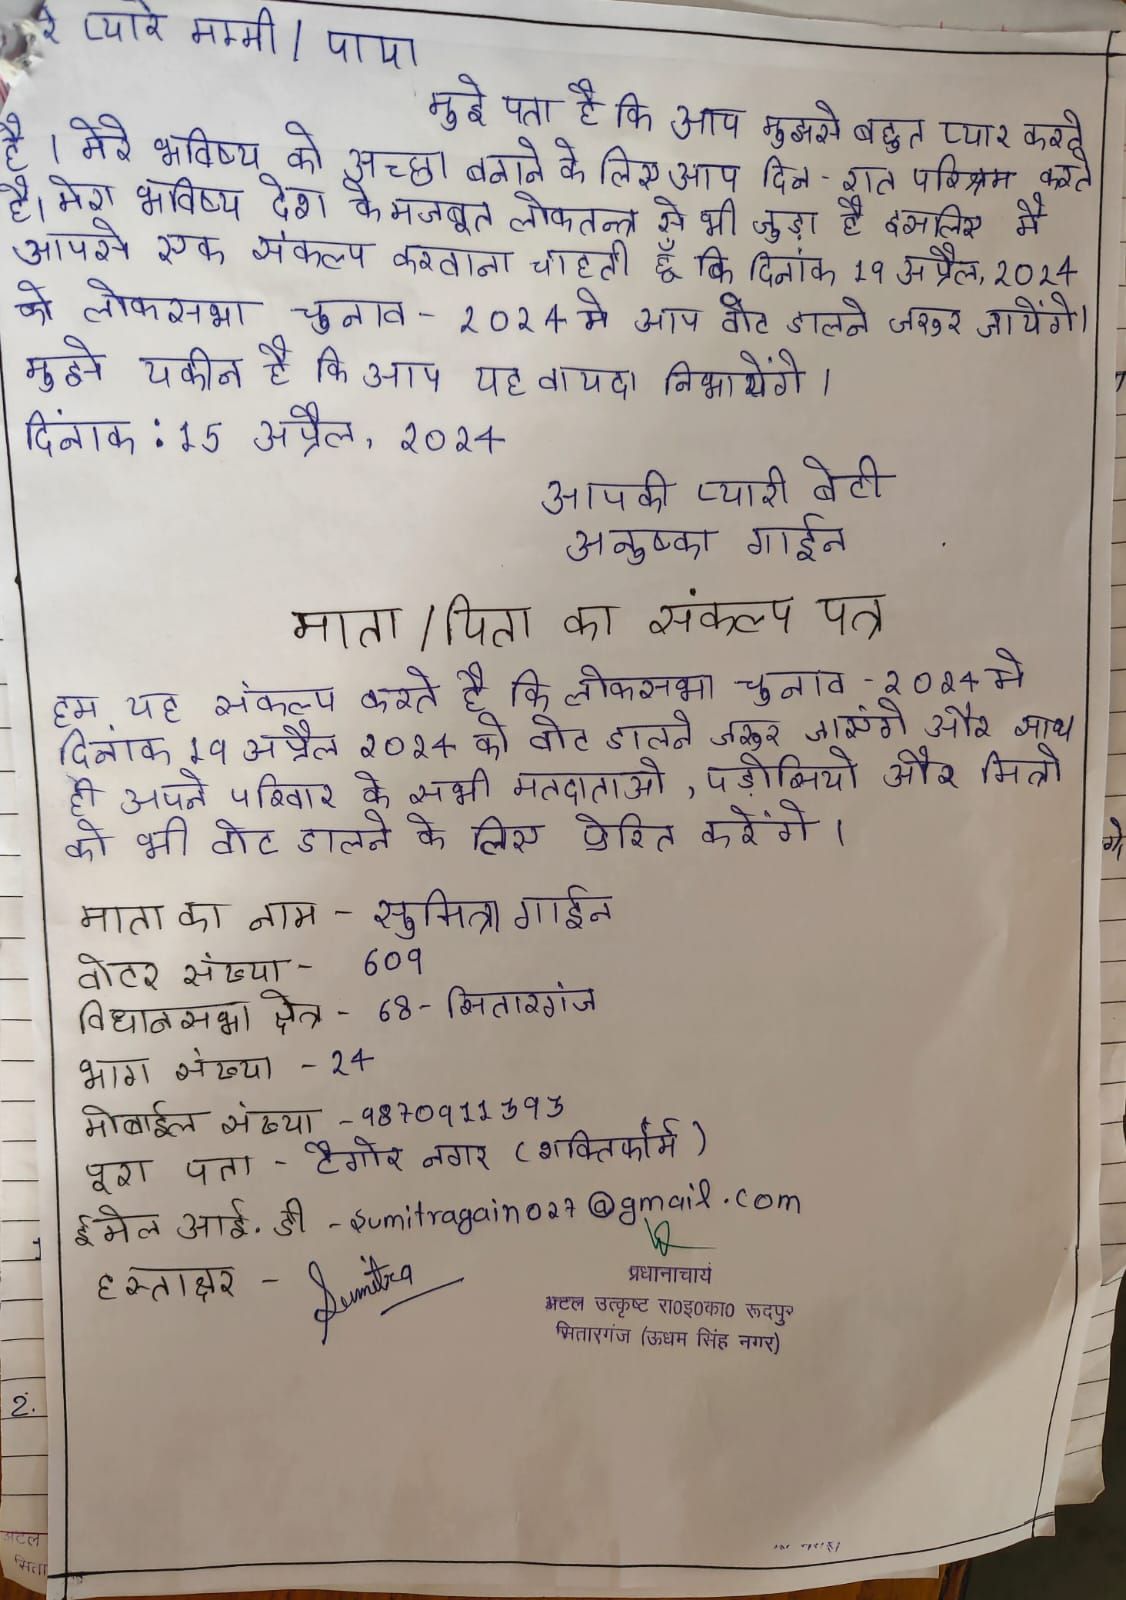 रे प्यारे मम्मी / पापा
मुझे पता है कि आप मुझसे बहुत प्यार करते
है । मेरे भविष्य को अच्छा बनाने के लिए आप दिन - रात परिश्रम करते
है। मेरा भविष्य देश के मजबूत लोकतन्त्र से भी जुड़ा है इसलिए मै
आपसे एक संकल्प करवाना चाहती हूँ कि दिनांक 19 अप्रैल, 2024
को लोकसभा चुनाव - 2024 मे आप वोट डालने जरुर जायेंगे।
मुझे यकीन है कि आप यह वायदा निभायेंगे ।
दिंनाक : 15 अप्रैल, 2024
आपकी प्यारी बेटी
अनुष्का गाईन
माता / पिता का संकल्प पत्र
हम यह संकल्प करते है कि लोकसभा चुनाव - 2024 मे
दिनांक 19 अप्रैल 2024 को वोट डालने जरुर जाएंगे और साथ
ही अपने परिवार के सभी मतदाताओ , पड़ोसियो और मित्रो
को भी वोट डालने के लिए प्रेरित करेंगे ।
माता का नाम - सुमित्रा गाईन
वोटर संख्या - 609
विधानसभा क्षेत्र - 68 - सितारगंज
भाग संख्या - 24
मोबाईल संख्या - 9870911393
पूरा पता - टैगोर नगर ( शक्तिफॉर्म )
ईमेल आई. डी - sumitragain027@gmail.com
हस्ताक्षर - Sumitra
प्रधानाचार्य
अटल उत्कृष्ट रा०इ०का० रूदपुर
सितारगंज (ऊधम सिंह नगर)
2.
अटल
सिता
गे।